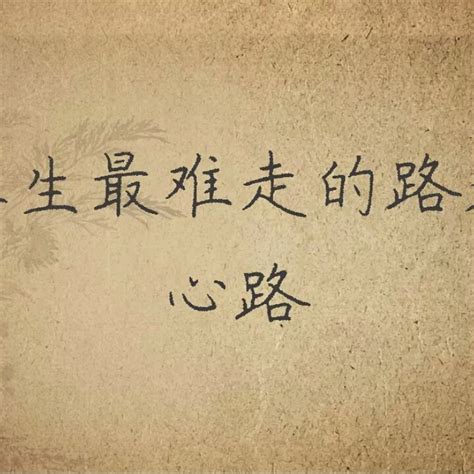 生最难走的路
心路